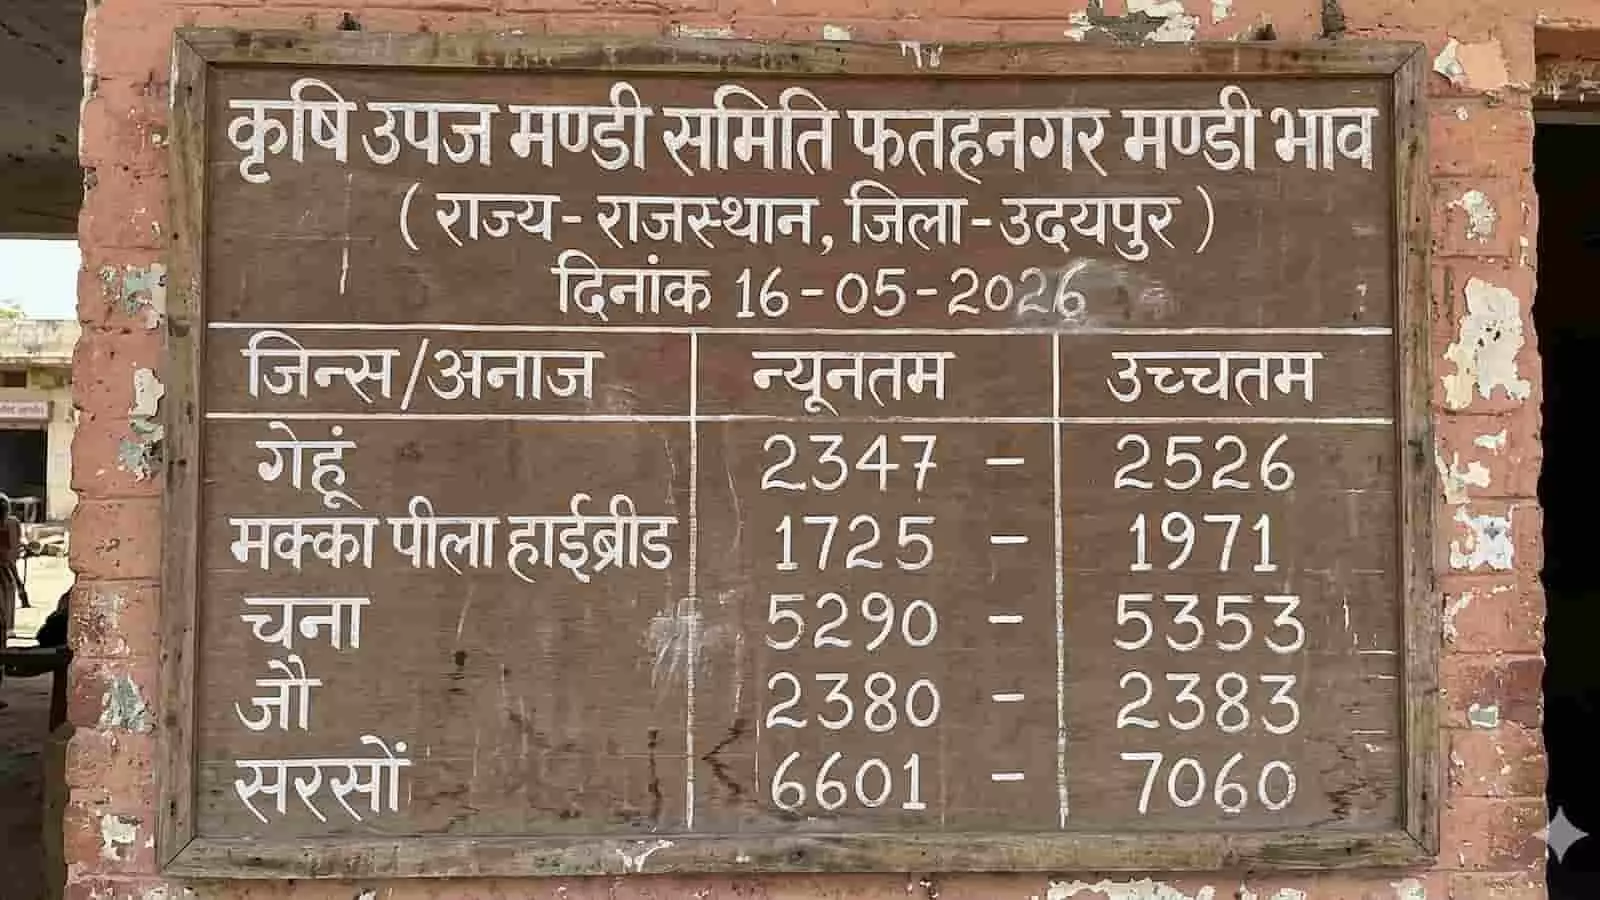 कृषि उपज मण्डी समिति फतहनगर मण्डी भाव
( राज्य - राजस्थान, जिला - उदयपुर )
दिनांक 16-05-2026
जिन्स/अनाज न्यूनतम उच्चतम
गेहूं 2347 - 2526
मक्का पीला हाईब्रीड 1725 - 1971
चना 5290 - 5353
जौ 2380 - 2383
सरसों 6601 - 7060